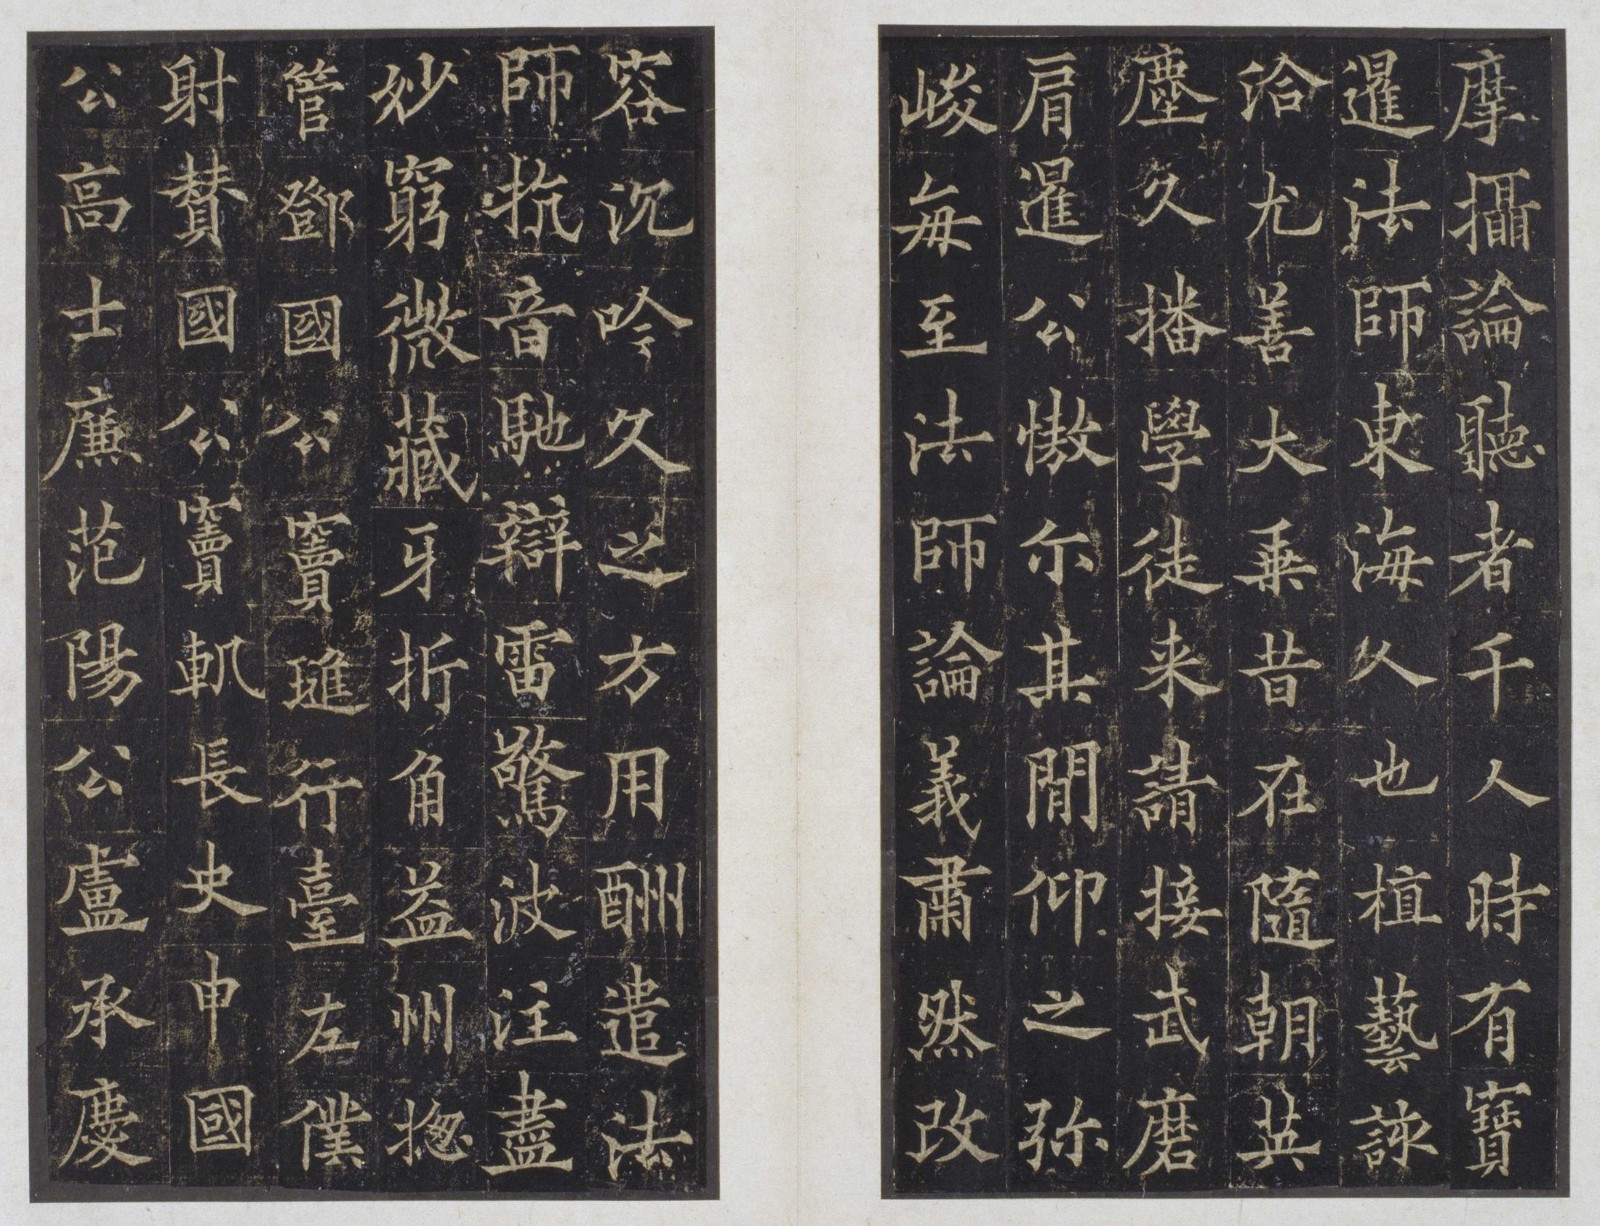 摩攝論聽者千人時有寶
暹法師東海久也植藝詠
洽尤善大乗昔在隨朝英
塵久播學徒来請接武磨
肩暹公慠尓其閒仰之弥
峻每至法師論義肅然改
容沉吟久之方用酬遣法
師抗音馳辯雷驚波注盡
妙窮微藏牙折角益州揔
管鄧國公竇璡行臺左僕
射賛國公竇軌長史申國
公高士廉范陽公盧承慶